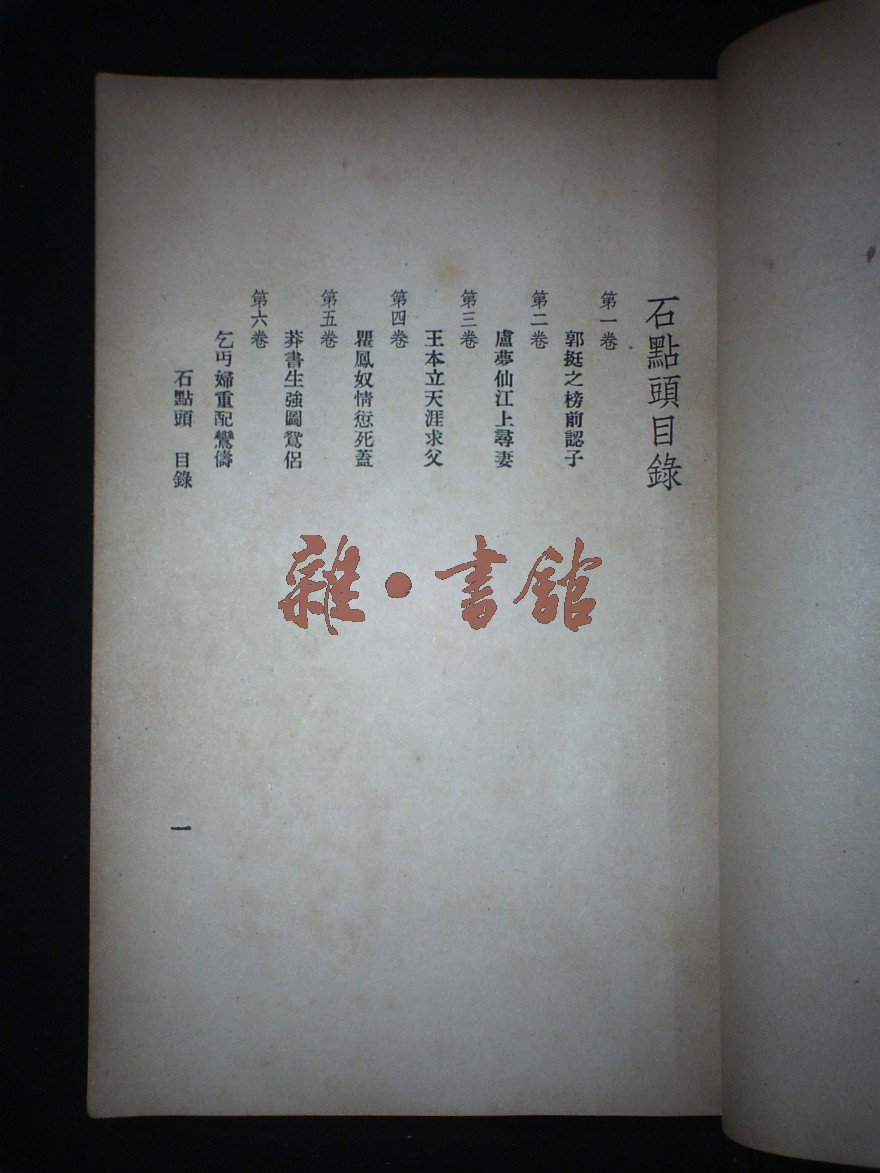 石點頭目錄
第一卷
郭挺之榜前認子
第二卷
盧夢仙江上尋妻
第三卷
王本立天涯求父
第四卷
瞿鳳奴情愆死蓋
第五卷
莽書生強圖鴛侶
第六卷
乞丐婦重配鸞儔
石點頭 目錄
一
雜·書館